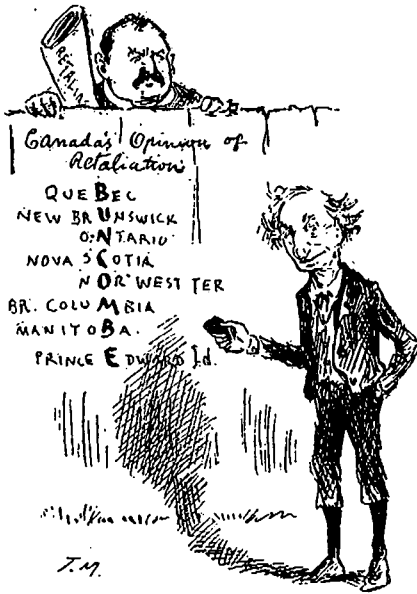 RETALIA
Canada's Opinion of
Retaliation
QUEBEC
NEW BRUNSWICK
ONTARIO
NOVA SCOTIA
NOR'WEST TER
BR. COLUMBIA
MANITOBA.
PRINCE EDWARD Id.
J.M.